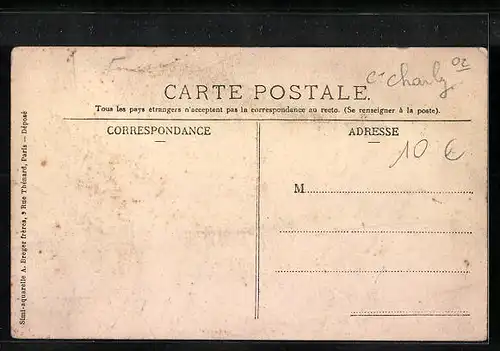 Ct Charly
02
CARTE POSTALE.
Tous les pays étrangers n'acceptent pas la correspondance au recto. (Se renseigner à la poste).
CORRESPONDANCE
ADRESSE
10 €
M
Simi-aquarelle A. Breger frères, 9 Rue Thénard, Paris — Déposé